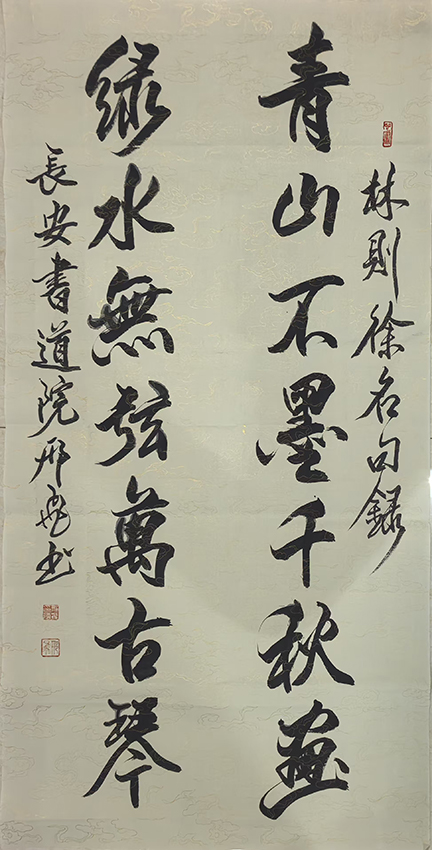 林則徐名句録
青山不墨千秋畫
緑水無弦萬古琴
長安書道院邢書